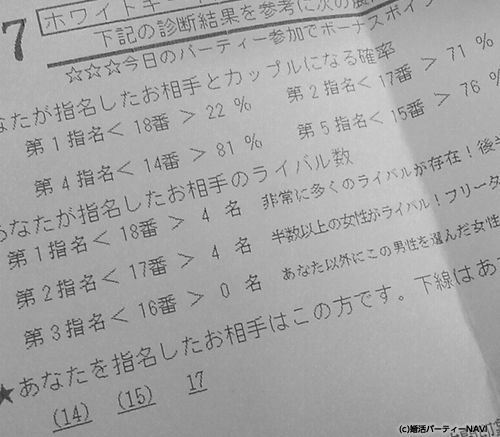 7
ホワイトキー
下記の診断結果を参考に次の
☆☆☆今日のパーティー参加でボーナスポイ
なたが指名したお相手とカップルになる確率
第1指名< 18番 > 22 % 第2指名< 17番 > 71 %
第4指名< 14番 > 81 % 第5指名< 15番 > 76 %
あなたが指名したお相手のライバル数
第1指名< 18番 > 4 名 非常に多くのライバルが存在!後半
第2指名< 17番 > 4 名 半数以上の女性がライバル!フリータ
第3指名< 16番 > 0 名 あなた以外にこの男性を選んだ女性
★あなたを指名したお相手はこの方です。下線はあ
(14) (15) 17
(c)婚活パーティーNAVI